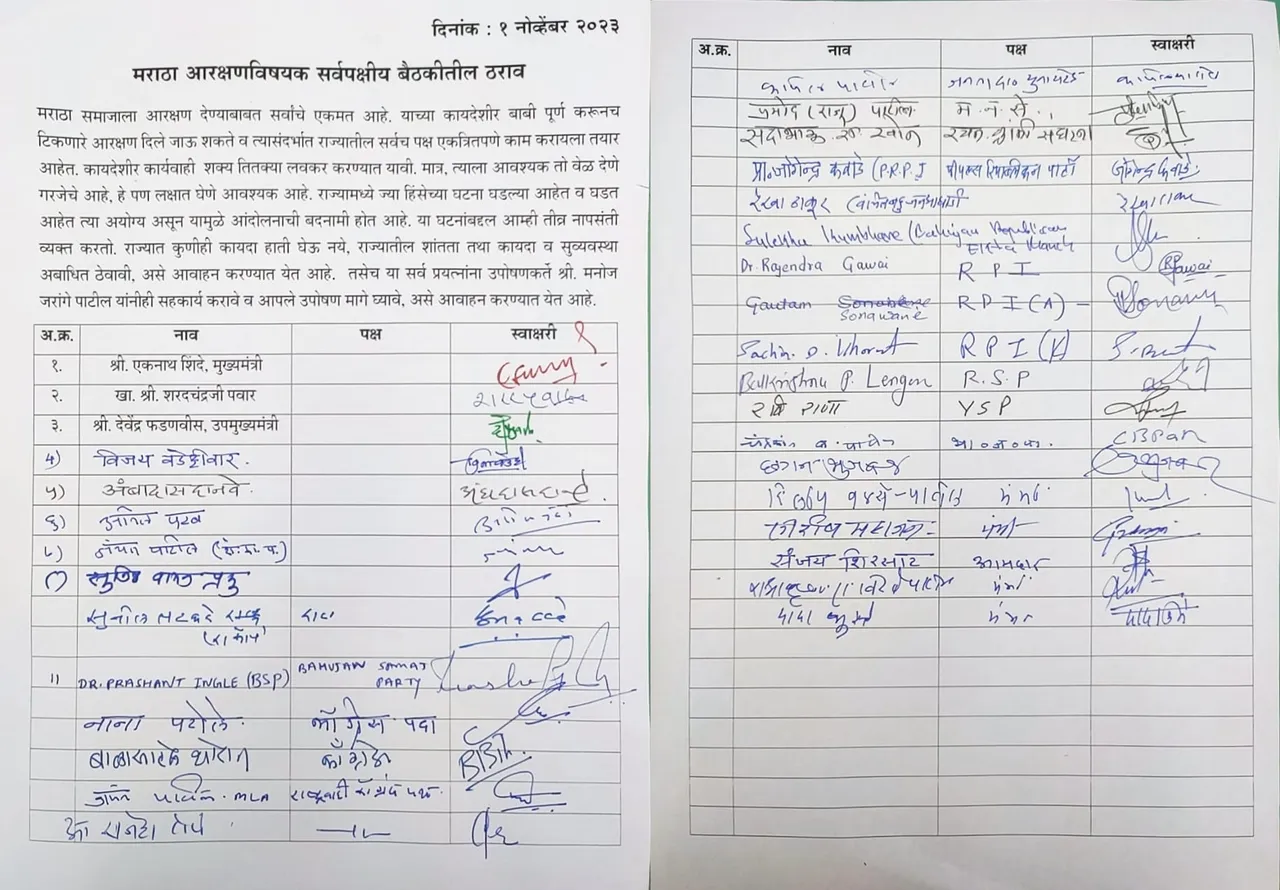 दिनांक : १ नोव्हेंबर २०२३
मराठा आरक्षणविषयक सर्वपक्षीय बैठकीतील ठराव
मराठा समाजाला आरक्षण देण्याबाबत सर्वांचे एकमत आहे. याच्या कायदेशीर बाबी पूर्ण करूनच
टिकणारे आरक्षण दिले जाऊ शकते व त्यासंदर्भात राज्यातील सर्वच पक्ष एकत्रितपणे काम करायला तयार
आहेत. कायदेशीर कार्यवाही शक्य तितक्या लवकर करण्यात यावी. मात्र, त्याला आवश्यक तो वेळ देणे
गरजेचे आहे, हे पण लक्षात घेणे आवश्यक आहे. राज्यामध्ये ज्या हिंसेच्या घटना घडल्या आहेत व घडत
आहेत त्या अयोग्य असून यामुळे आंदोलनाची बदनामी होत आहे. या घटनांबद्दल आम्ही तीव्र नापसंती
व्यक्त करतो. राज्यात कुणीही कायदा हाती घेऊ नये, राज्यातील शांतता तथा कायदा व सुव्यवस्था
अबाधित ठेवावी, असे आवाहन करण्यात येत आहे. तसेच या सर्व प्रयत्नांना उपोषणकर्ते श्री. मनोज
जरांगे पाटील यांनीही सहकार्य करावे व आपले उपोषण मागे घ्यावे, असे आवाहन करण्यात येत आहे.
अ.क्र. नाव पक्ष स्वाक्षरी
१. श्री. एकनाथ शिंदे, मुख्यमंत्री
२. खा. श्री. शरदचंद्रजी पवार
३. श्री. देवेंद्र फडणवीस, उपमुख्यमंत्री
४) विजय वडेट्टीवार.
५) अंबादास दानवे. अंबादास दानवे.
६)
११ DR. PRASHANT INGLE (BSP) BAHUJAN SAMAJ PARTY
नाना पटोले. काँग्रेस पक्ष
बाळासाहेब थोरात काँग्रेस
MLA राष्ट्रवादी काँग्रेस पक्ष.
अ.क्र. नाव पक्ष स्वाक्षरी
कपिल पाटील जनता दल युनायटेड
प्रमोद (राजू) पाटील म. न. से.
सदाभाऊ रा. खोत रयत क्रांती संघटना
प्रा. जोगेन्द्र कवाडे (P.R.P.I पीपल्स रिपब्लिकन पार्टी जोगेन्द्र कवाडे
रेखा ठाकूर (वंचित बहुजन आघाडी
Sulekha Kumbhare (Bahujan Republican Ekta Manch
Dr. Rajendra Gawai R P I
Gautam Sonawane R P I (A) -
Sachin. D. Kharat R P I (K)
Balkrishna P. Lengare R.S.P
रवि राणा YSP
छगन भुजबळ
गिरीष महाजन मंत्री
संजय शिरसाट आमदार
दादा भुसे मंत्री